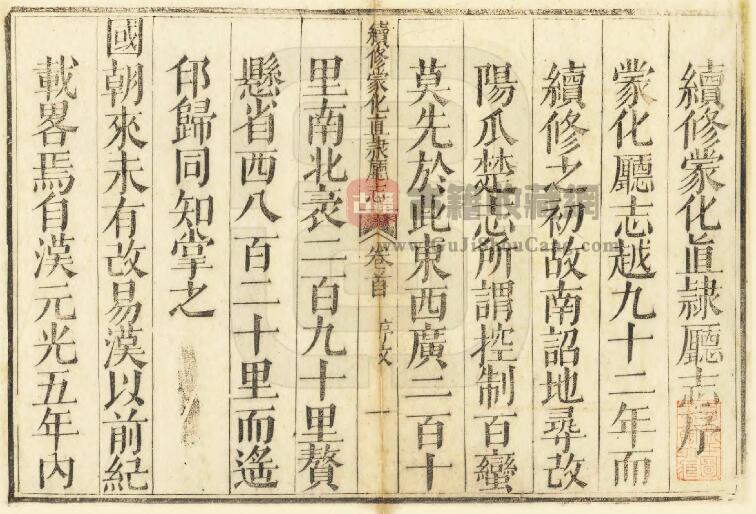 續修蒙化直隸廳志序
蒙化廳志越九十二年而
續修之初故南詔地尋改
陽瓜楚志所謂控制百蠻
莫先於此東西廣二百十
續修蒙化直隸廳志 卷首 序文 一
里南北袤二百九十里贅
懸省西八百二十里而遙
邙歸同知掌之
國朝來未有改易漢以前紀
載畧焉自漢元光五年內
古籍 古籍收藏網
www.GuJiShouCang.com